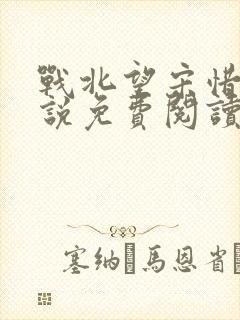 戰北望宋惜
說免費閱讀
塞納·馬恩省·